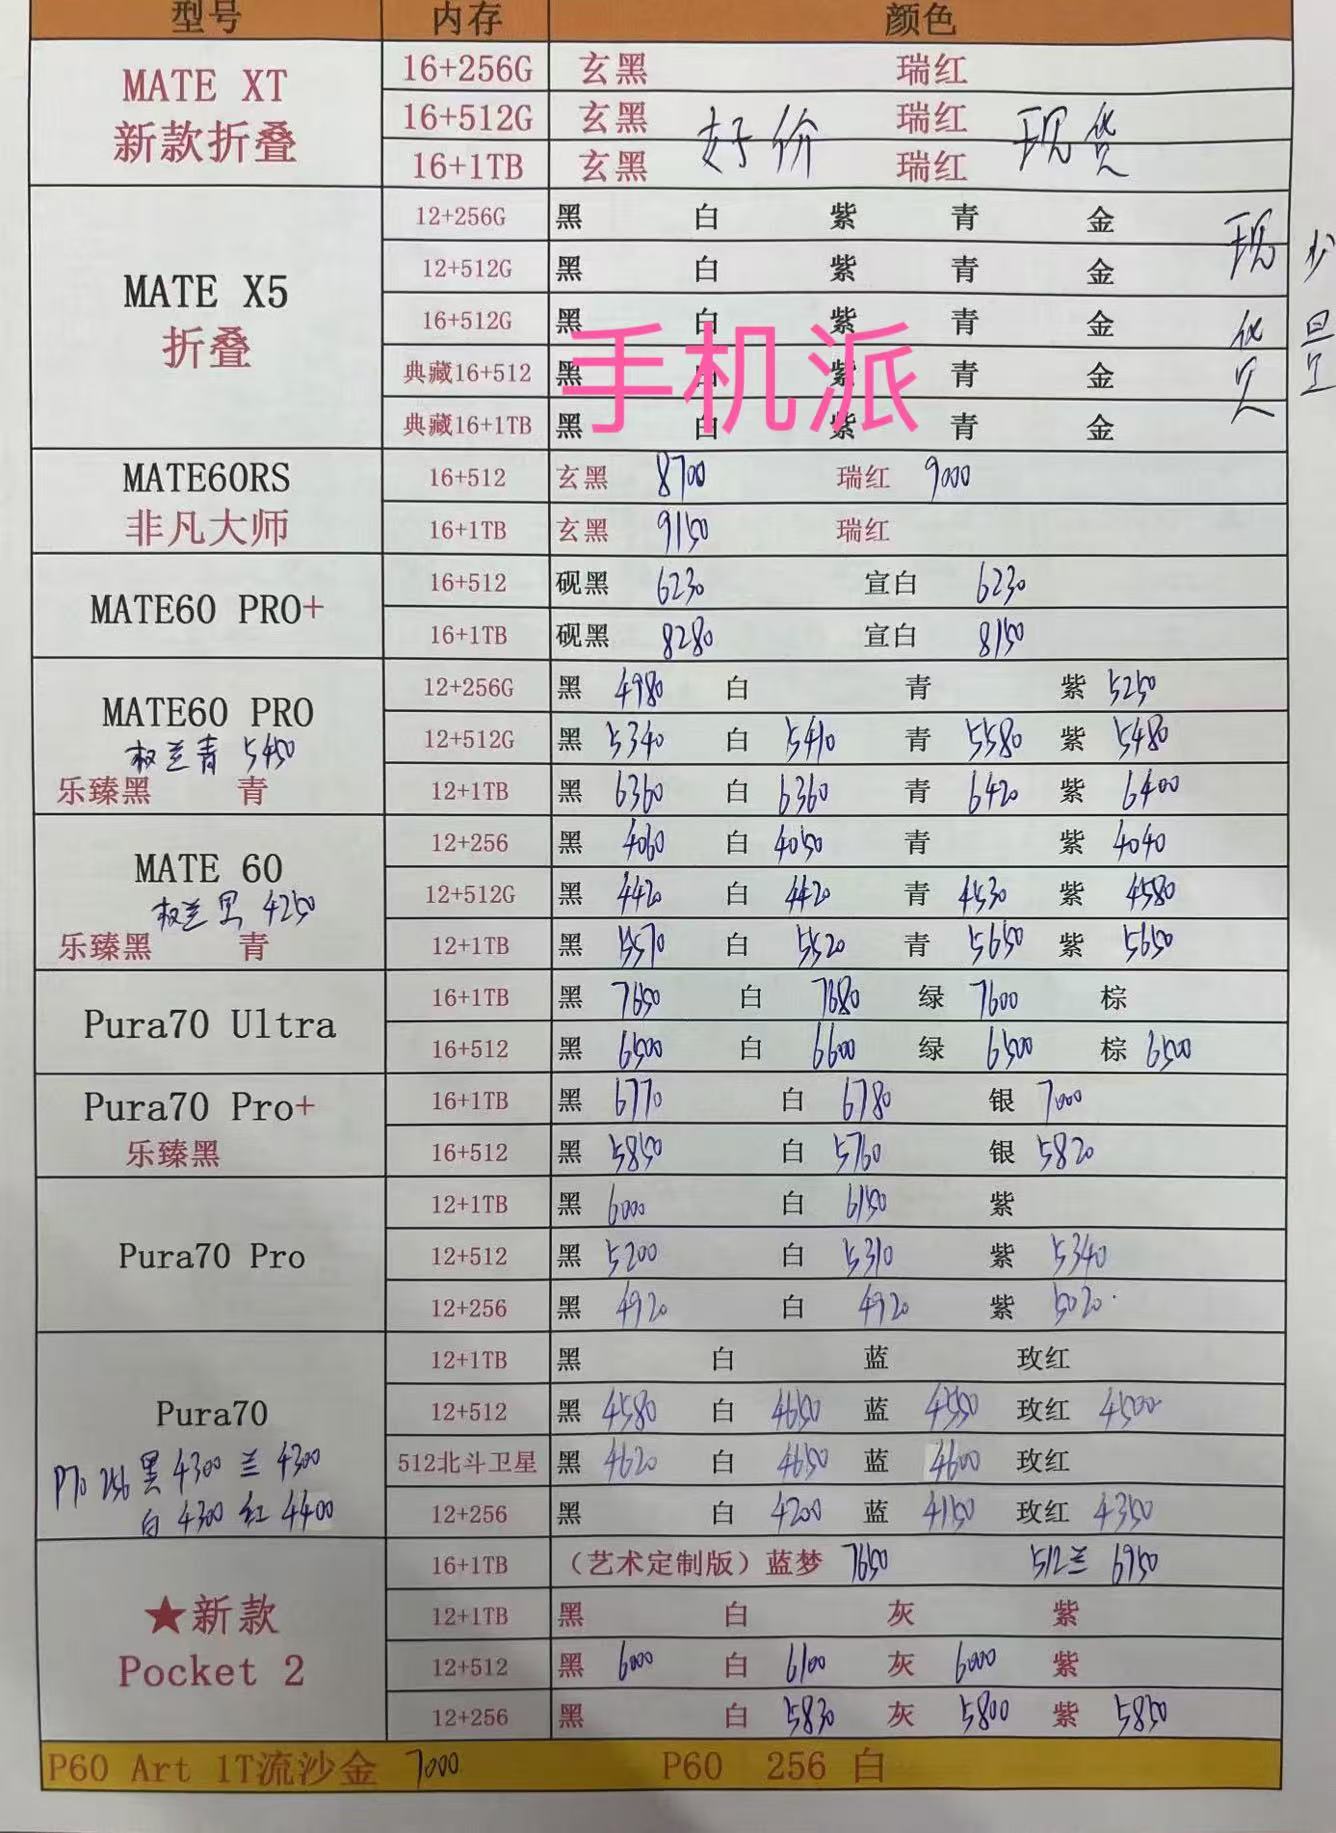 型号 内存 颜色
MATE XT 新款折叠
16+256G 玄黑 瑞红
16+512G 玄黑 瑞红
16+1TB 玄黑 瑞红
好价 现货
MATE X5 折叠
12+256G 黑 白 紫 青 金
12+512G 黑 白 紫 青 金
16+512G 黑 白 紫 青 金
典藏16+512 黑 白 紫 青 金
典藏16+1TB 黑 白 紫 青 金
现货 少量
手机派
MATE60RS 非凡大师
16+512 玄黑 8700 瑞红 9000
16+1TB 玄黑 9150 瑞红
MATE60 PRO+
16+512 砚黑 6230 宣白 6230
16+1TB 砚黑 8280 宣白 8150
MATE60 PRO
12+256G 黑 4980 白 青 紫 5250
12+512G 黑 5340 白 5410 青 5580 紫 5480
青 5450
乐臻黑 青
12+1TB 黑 6360 白 6360 青 6420 紫 6400
MATE 60
12+256 黑 4060 白 4050 青 紫 4040
12+512G 黑 4420 白 4420 青 4530 紫 4580
黑 4250
乐臻黑 青
12+1TB 黑 5570 白 5520 青 5650 紫 5650
Pura70 Ultra
16+1TB 黑 7650 白 7680 绿 7600 棕
16+512 黑 6500 白 6600 绿 6500 棕 6500
Pura70 Pro+
乐臻黑
16+1TB 黑 6770 白 6780 银 7000
16+512 黑 5850 白 5760 银 5820
Pura70 Pro
12+1TB 黑 6000 白 6150 紫
12+512 黑 5200 白 5310 紫 5340
12+256 黑 4920 白 4920 紫 5020
Pura70
12+1TB 黑 白 蓝 玫红
12+512 黑 4580 白 4650 蓝 4550 玫红 4500
P70 256 黑 4300 兰 4300
白 4300 红 4400
512北斗卫星 黑 4620 白 4650 蓝 4600 玫红
12+256 黑 白 4200 蓝 4150 玫红 4350
★新款 Pocket 2
16+1TB （艺术定制版）蓝梦 7650 512兰 6950
12+1TB 黑 白 灰 紫
12+512 黑 6000 白 6100 灰 6000 紫
12+256 黑 白 5830 灰 5800 紫 5850
P60 Art 1T流沙金 7000 P60 256 白